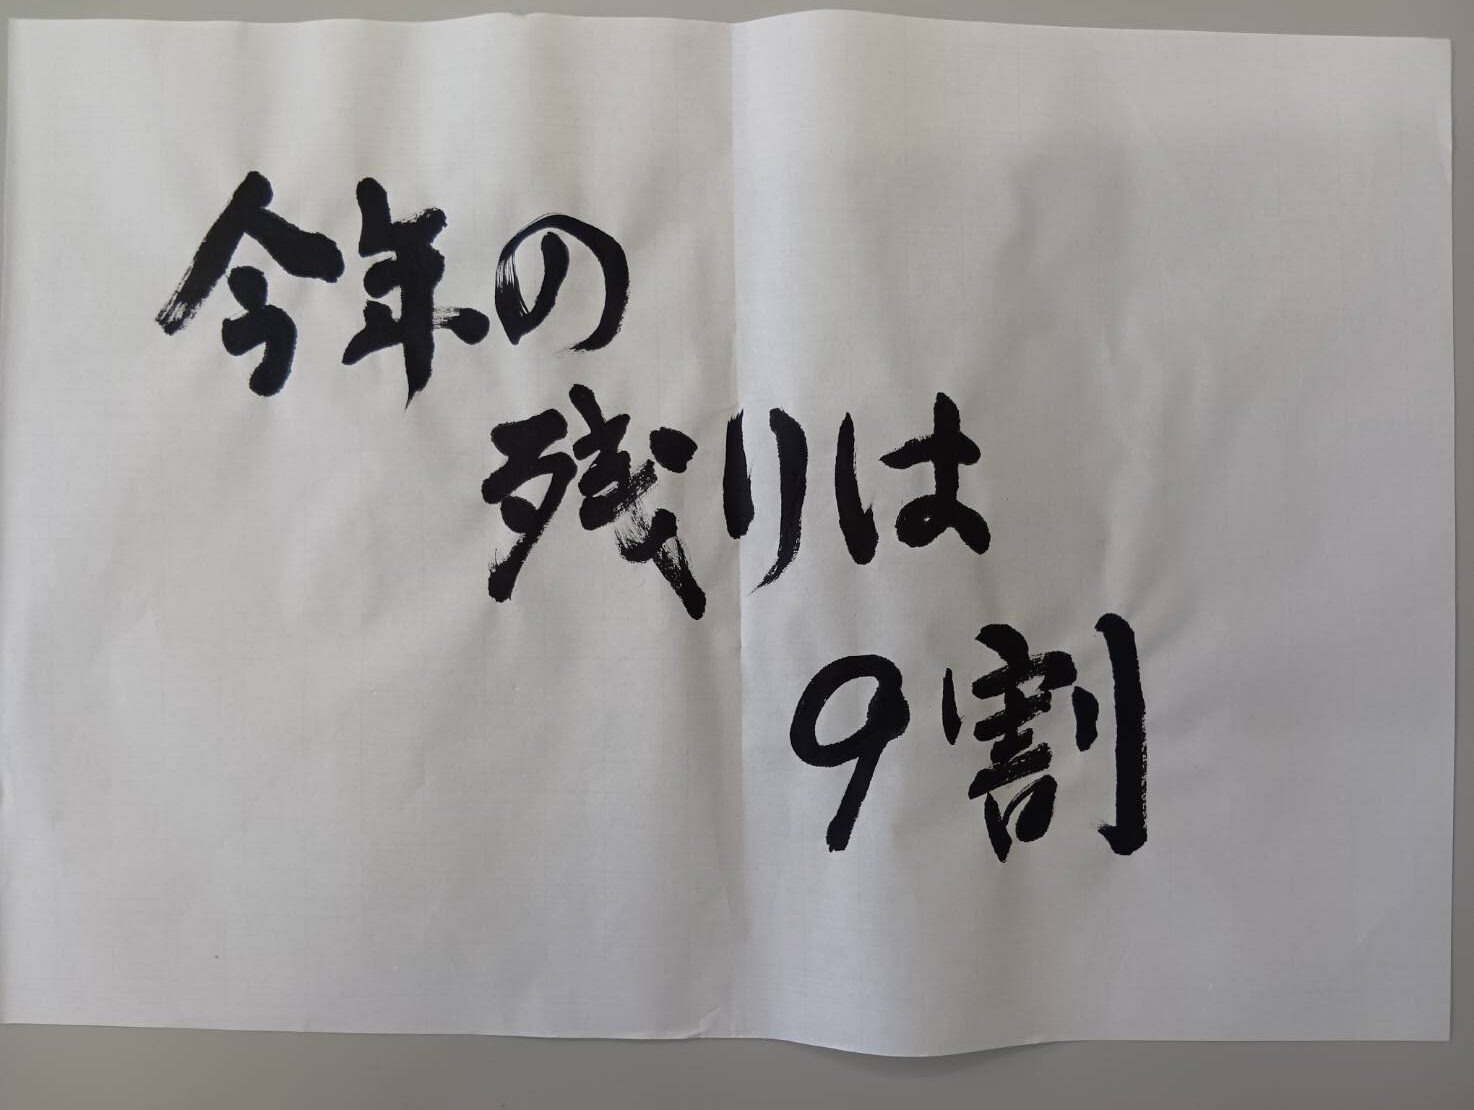 今年の
残りは
9割